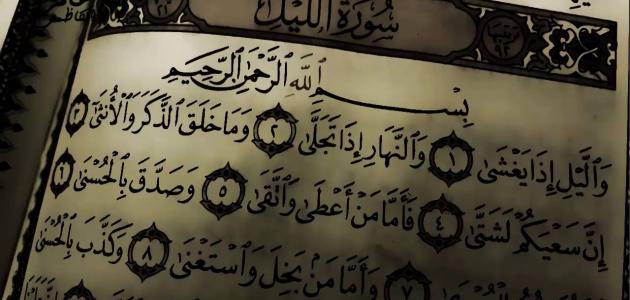 سُورَةُ اللَّيْلِ
بِسْمِ ٱللَّهِ ٱلرَّحْمَٰنِ ٱلرَّحِيمِ
وَٱلَّيْلِ إِذَا يَغْشَىٰ ١ وَٱلنَّهَارِ إِذَا تَجَلَّىٰ ٢ وَمَا خَلَقَ ٱلذَّكَرَ وَٱلْأُنثَىٰٓ ٣
إِنَّ سَعْيَكُمْ لَشَتَّىٰ ٤ فَأَمَّا مَنْ أَعْطَىٰ وَٱتَّقَىٰ ٥ وَصَدَّقَ بِٱلْحُسْنَىٰ ٦
وَأَمَّا مَنۢ بَخِلَ وَٱسْتَغْنَىٰ ٨ وَكَذَّبَ بِٱلْحُسْنَىٰ